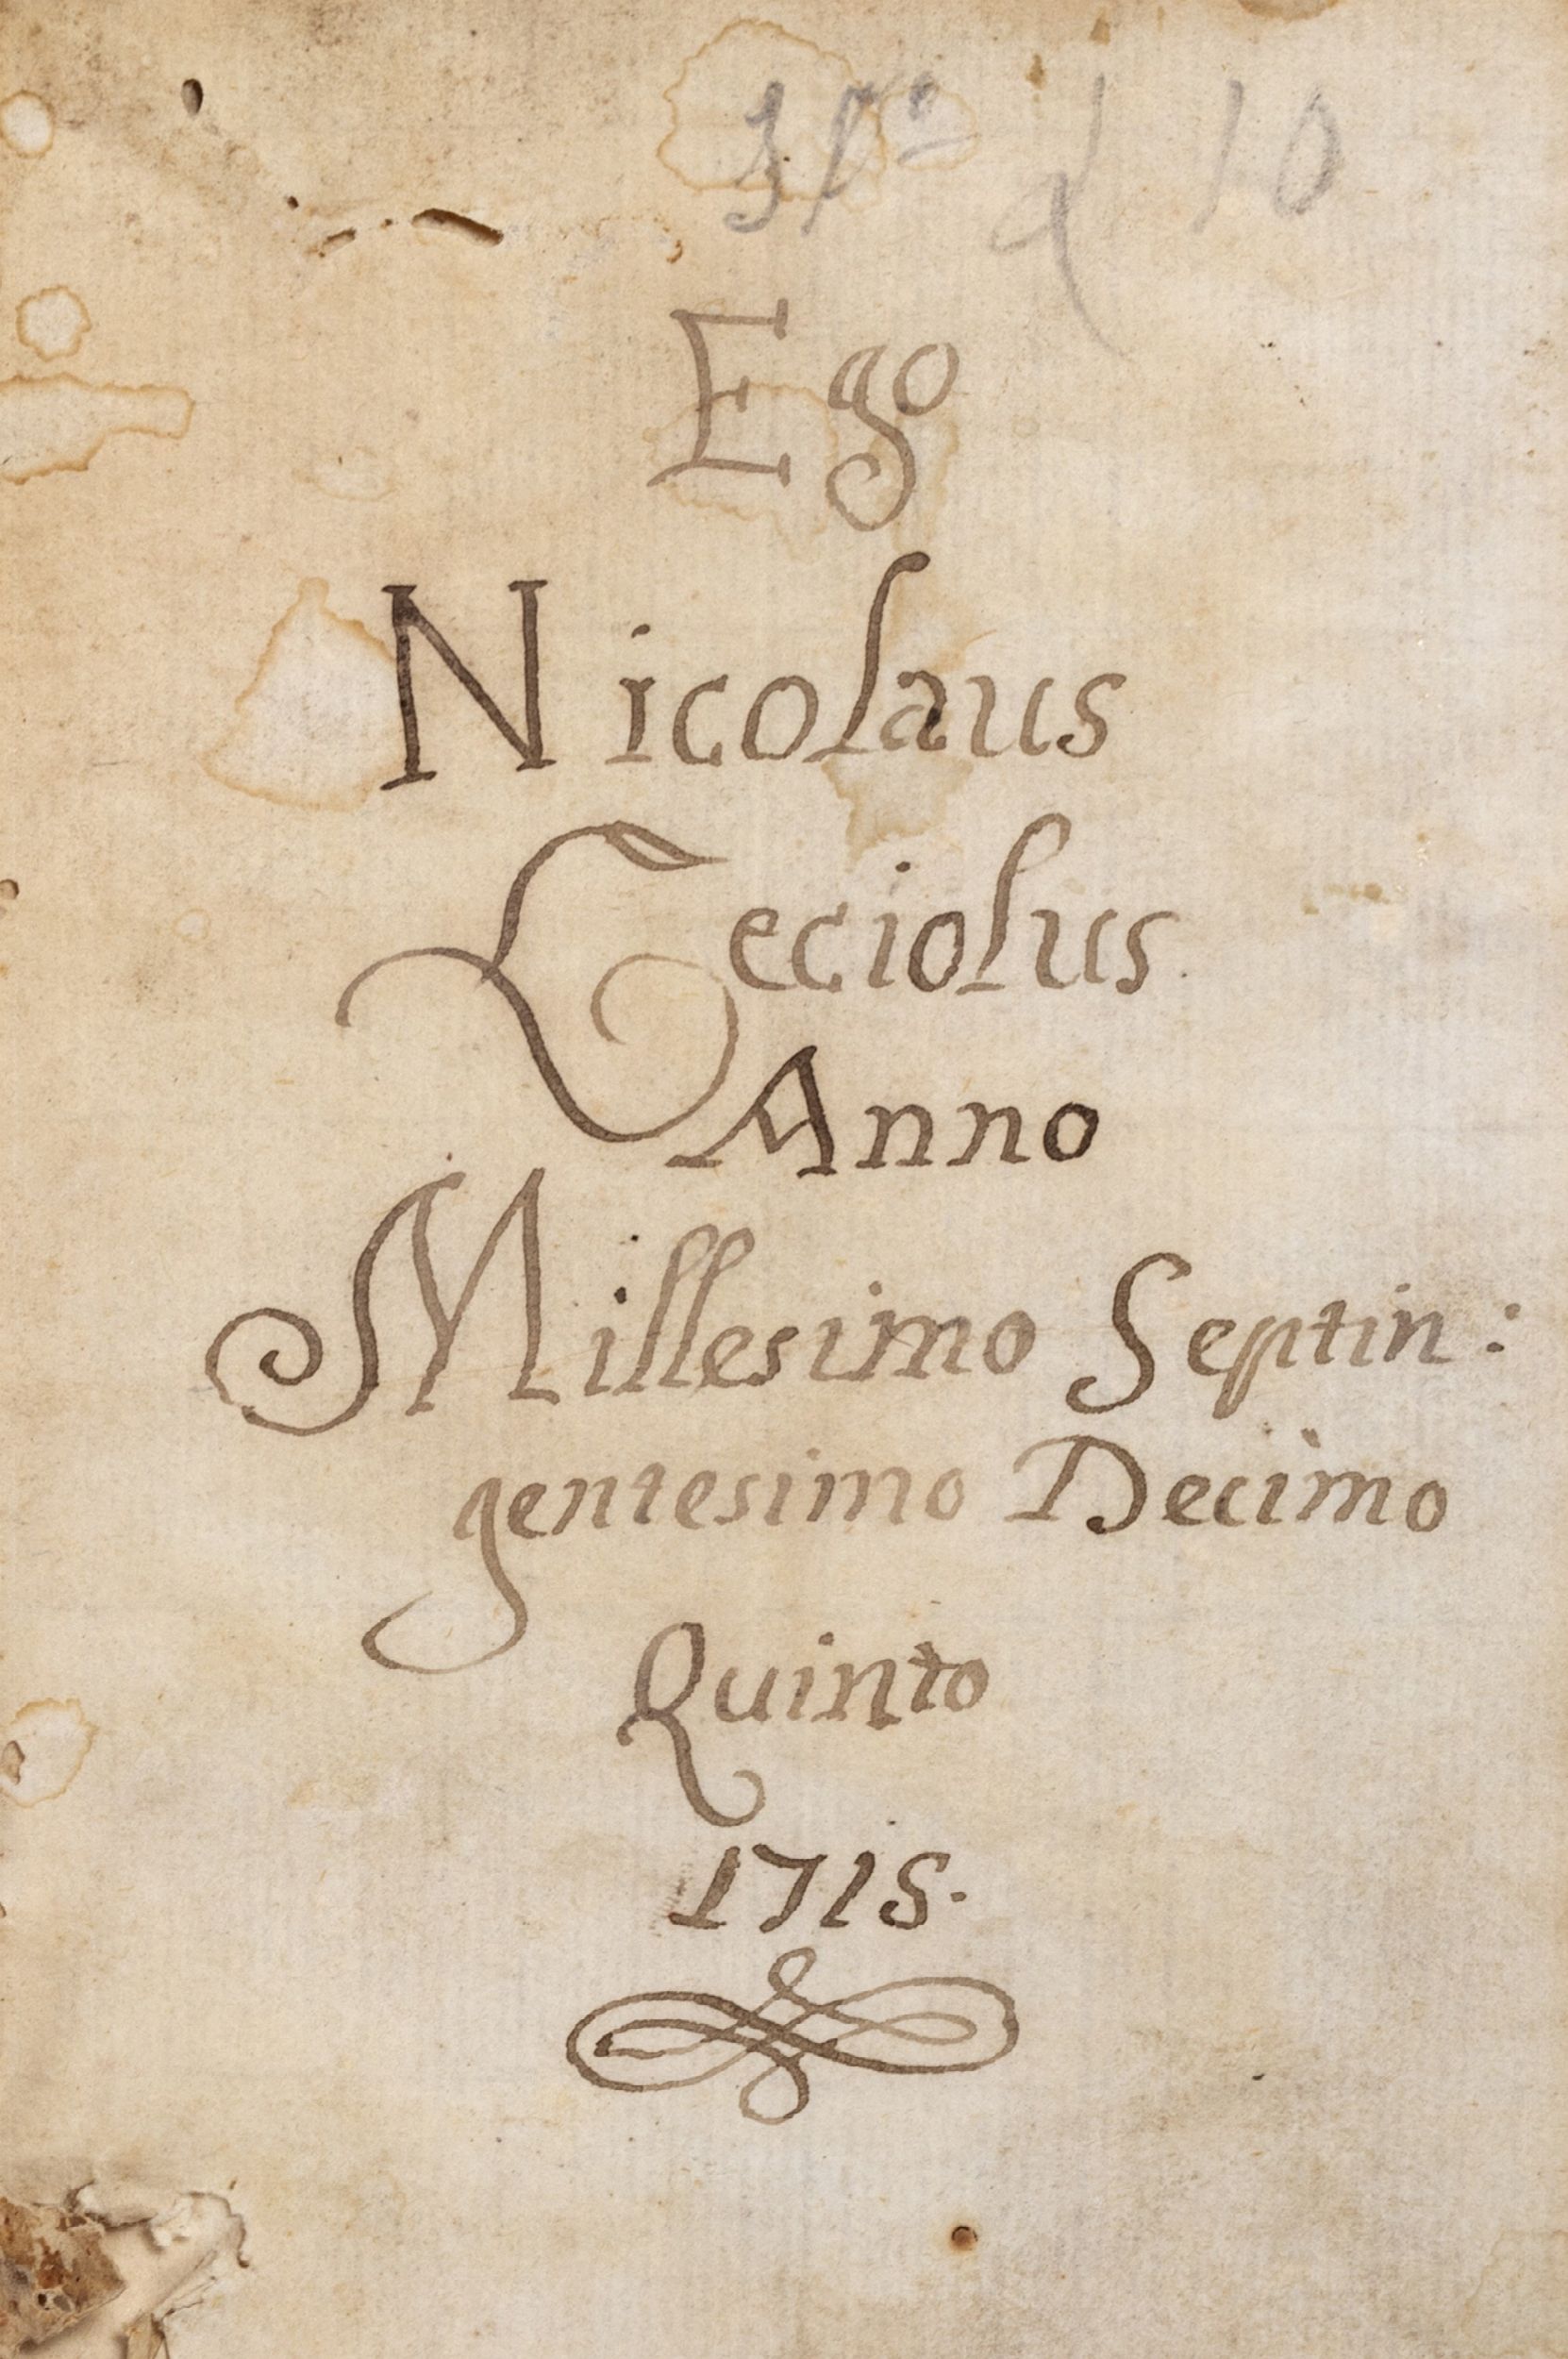 Ego
Nicolaus
Ceciolus
Anno
Millesimo Septin:
gentesimo Decimo
Quinto
1715.